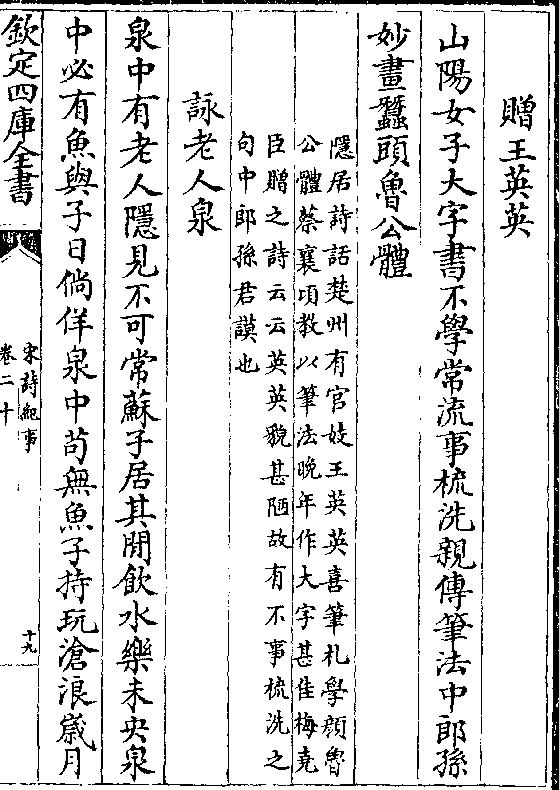 贈王英英
山陽女子大字書不學常流事梳洗親傳筆法中郎孫
妙畫蠶頭魯公體
隱居詩話楚州有官妓王英英喜筆札學顔魯
公體蔡襄頃教以筆法晩年作大字甚佳梅堯
臣贈之詩云云英英貌甚陋故有不事梳洗之
句中郎孫君謨也
詠老人泉
泉中有老人隱見不可常蘇子居其間飲水樂未央泉
中必有魚與子日倘佯泉中苟無魚子持玩滄浪歲月
欽定四庫全書
宋詩紀事
卷二十
十九